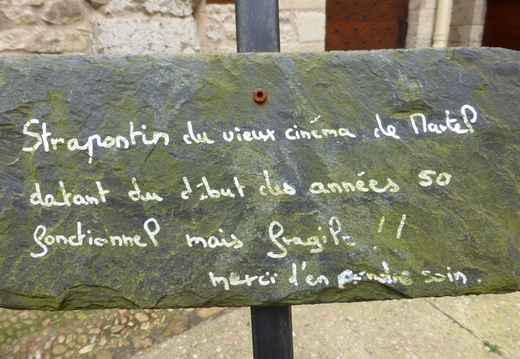 Strapontin du vieux cinéma de Martel
datant du début des années 50
fonctionnel mais fragile !!
merci d'en prendre soin.